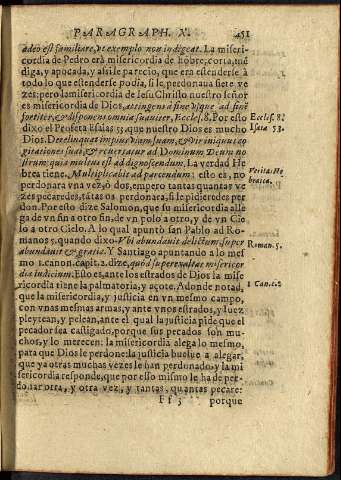 PARAGRAPH. X. 451
adeo est familiare, vt exemplo non indigeat. La miseri-
cordia de Pedro erà misericordia de hõbre, corta, mẽ
diga, y apocada, y assi le parecio, que era estenderse à
todo lo que estenderse podia, si le perdonaua siete ve
zes: pero la misericordia de Iesu Christo nuestro señor
es misericordia de Dios, attingens à fine vsque ad finẽ
fortiter, & disponens omnia suauiter, Eccles. 8. Por esto
Eccles. 8.
dixo el Profeta Esaias 55. que nuestro Dios es mucho
Isaia 53.
Dios. Derelinquat impius viam suam, & vir iniquus co
gitationes suas, & reuertatur ad Dominum Deum no
strum, quia multus est ad dignoscendum. La verdad He
Verita. He
brea tiene. Multiplicabit ad parcendum: esto es, no
breaica.
perdonara vna vez, ò dos, empero tantas quantas ve
zes pecaredes, tãtas os perdonara, si le pidieredes per
don. Por esto dize Salomon, que su misericordia alle
ga de vn fin a otro fin, de vn polo a otro, y de vn Cie
lo a otro Cielo. A lo qual apuntò san Pablo ad Ro-
manos 5. quando dixo. Vbi abundauit delictum, super
Roman. 5.
abundauit & gratia. Y Santiago apuntando a lo mes
mo 1. canon. capit. 2. dize, quòd superexaltat misericor
1 Can. c. 2
dia iudicium. Esto es, ante los estrados de Dios la mise
ricordia tiene la palmatoria, y açote. Adonde notad,
que la misericordia, y justicia en vn mesmo campo,
con vnas mesmas armas, y ante vnos estrados, y luez
pleytean, y pelean, ante el qual la justicia pide que el
pecador sea castigado, porque sus pecados son mu-
chos, y lo merecen: la misericordia alega lo mesmo,
para que Dios le perdone: la justicia buelue a alegar,
que ya otras muchas vezes le han perdonado: y la mi
sericordia responde, que por esso mismo le ha de per-
donar otra, y otra vez, y tantas, quantas pecare:
Ff 3 porque